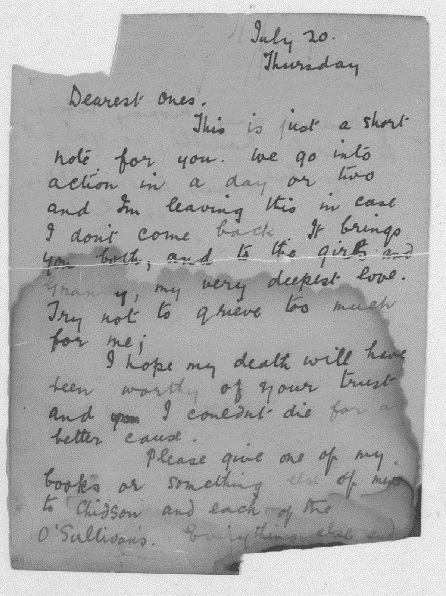 July 20.
Thursday
Dearest ones.
This is just a short
note for you. We go into
action in a day or two
and I'm leaving this in case
I don't come back. It brings
you both, and to the girls and
Granny, my very deepest love.
Try not to grieve too much
for me;
I hope my death will have
been worthy of your trust
and I couldn't die for a
better cause.
Please give one of my
books or something else of mine
to Chidson and each of the
O'Sullivans. Everything else